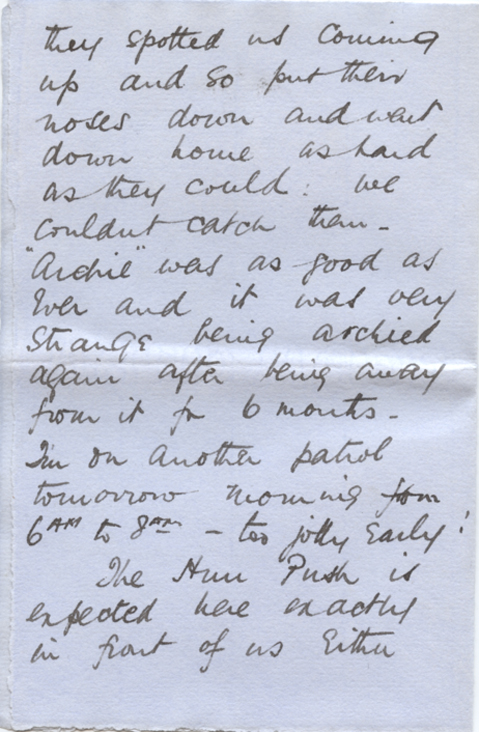 they spotted us Coming
up and so put their
noses down and went
down home as hard
as they could: we
couldnt catch them -
"Archie" was as good as
Ever and it was very
strange being archied
again after being away
from it for 6 months -
I'm on another patrol
tomorrow morning from
6 AM to 8 AM - too jolly Early!
The Hun Push is
expected here exactly
in front of us Either